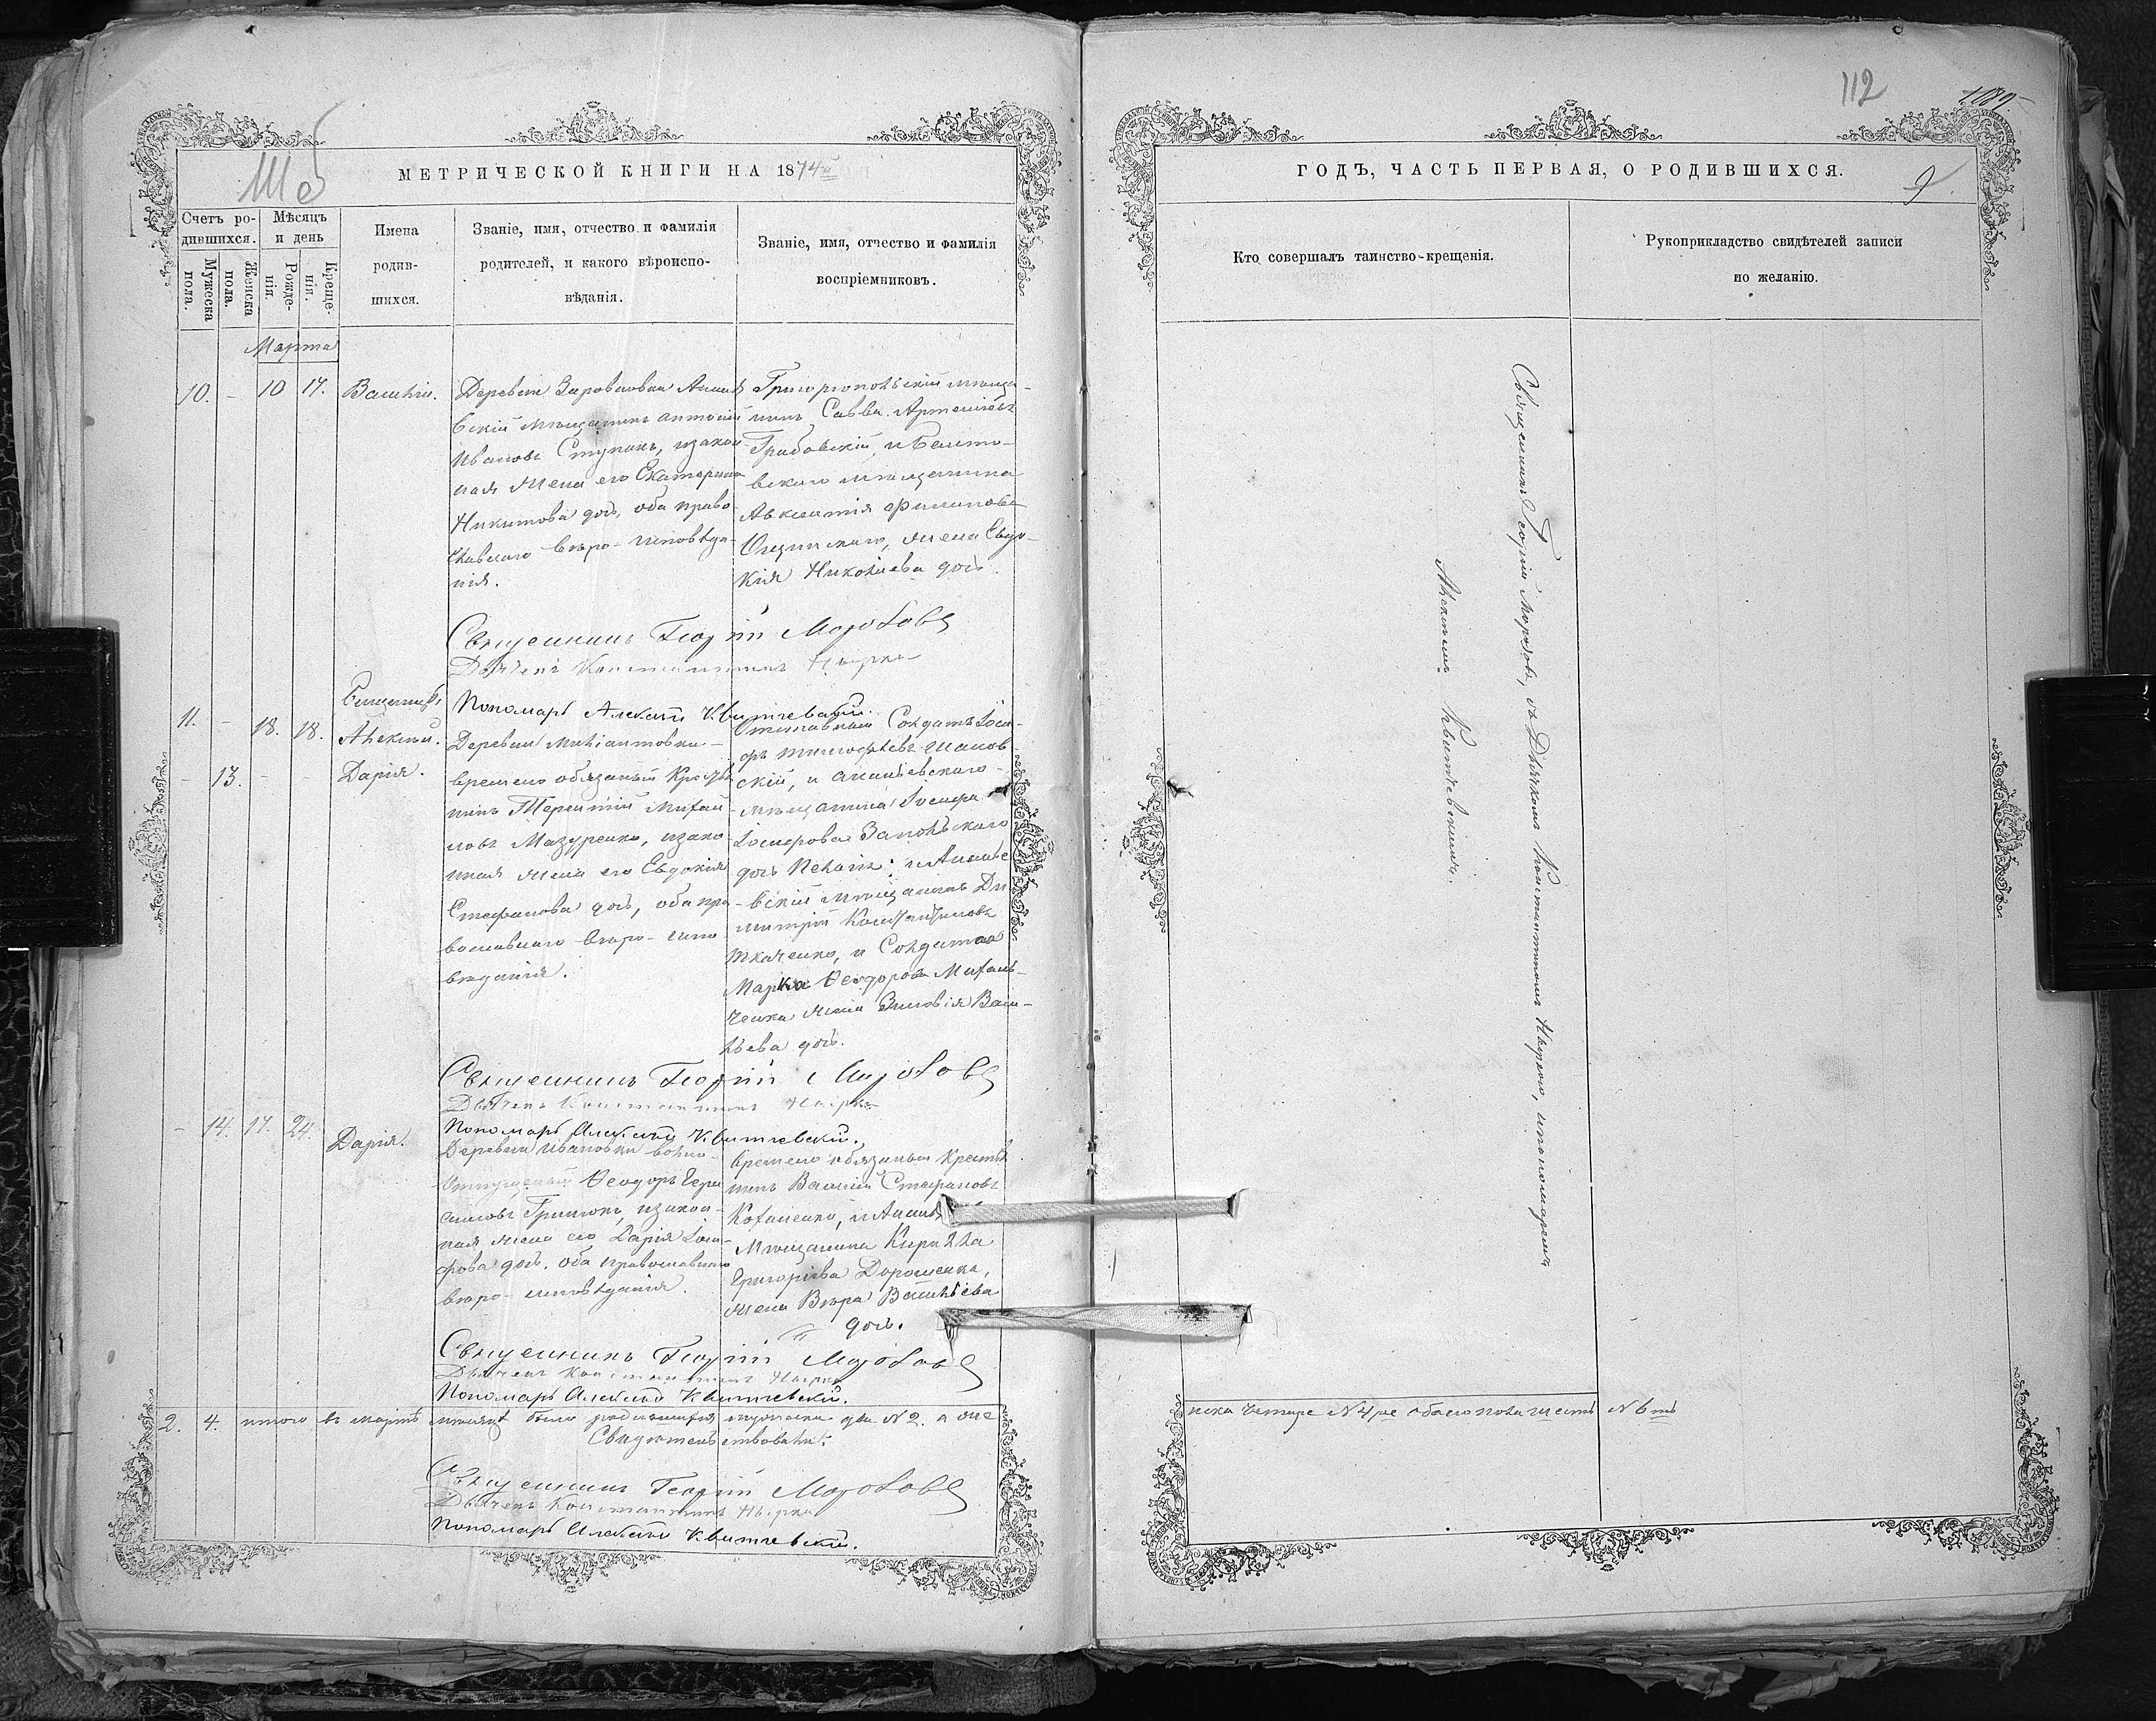 112
1089
Шб
МЕТРИЧЕСКОЙ КНИГИ НА 1874й
Счетъ ро-
дившихся.
Мужеска пола.
Женска пола.
Мѣсяцъ
и день
Рожде-
нія.
Креще-
нія.
Имена
родив-
шихся.
Званіе, имя, отчество и фамилія
родителей, и какого вѣроиспо-
вѣданія.
Званіе, имя, отчество и фамилія
воспріемниковъ.
Марта
10. - 10 17. Василій.
Деревни
скій мѣщанинъ Антоній
Ивановъ Ступакъ, и закон
ная жена его Екатерина
Никитова дочь, оба право
славнаго вѣро-исповѣда-
нія.
Григоріопольскій мѣща-
нинъ Савва Артеміевъ
Грабовскій, и Балто-
вскаго мѣщанина
Авксентія Филипова
жена Евдо-
кія Николаева дочь.
Священникъ Георгій Морозовъ
Дьячекъ Константинъ Нырко
Пономарь Алексѣй Квитчевскій.
11. - 18. 18.
Близнецы
Алексѣй.
- 13. - - Дарія.
Деревни
временно обязаный Крестья
нинъ Терентій Михай
ловъ Мазуренко, и зако
нная жена его Евдокія
Стефанова дочь, оба пра
вославнаго вѣро-испо
вѣданія.
Отставный Солдатъ Іоси-
фъ Тимофѣевъ
скій, и ананьевскаго
мѣщанина Іосифа
Іосифова Запольскаго
дочь Пелагія: и Ананье
вскій мѣщанинъ Ди
митрій Константиновъ
Ткаченко, и Солдата
Марка Ѳеодорова Михаль-
ченка жена Зиновія Васи-
льева дочь.
Священникъ Георгій Морозовъ
Дьячекъ Константинъ Нырко
Пономарь Алексѣй Квитчевскій.
- 14. 17. 24. Дарія.
Деревни Ивановки вольно-
отпущеный Ѳеодоръ Гера
симовъ Гринюкъ, и закон-
ная жена его Дарія Іоси-
фова дочь, оба православнаго
вѣро-исповѣданія.
временно обязаный Крестья
нинъ Василій Стефановъ
Коханенко, и
Мѣщанина Кирилла
Григоріева Дорошенка,
жена Вѣра Васильева
дочь.
Священникъ Георгій Морозовъ
Дьячекъ Константинъ Нырко
Пономарь Алексѣй Квитчевскій.
2. 4. итого въ мартѣ мѣсяцѣ было родившихся мужеска два №2. а же
Свидѣтельствовали:
Священникъ Георгій Морозовъ
Дьячекъ Константинъ Нырко
Пономарь Алексѣй Квитчевскій.
ГОДЪ, ЧАСТЬ ПЕРВАЯ, О РОДИВШИХСЯ.
9.
Кто совершалъ таинство-крещенія.
Рукоприкладство свидѣтелей записи
по желанію.
Священникъ Георгій Морозовъ, съ Дьячкомъ Константиномъ Ныркою, и пономаремъ
Алексѣемъ Квитчевскимъ.
нска четыре №4ре обоего пола шесть №6ть